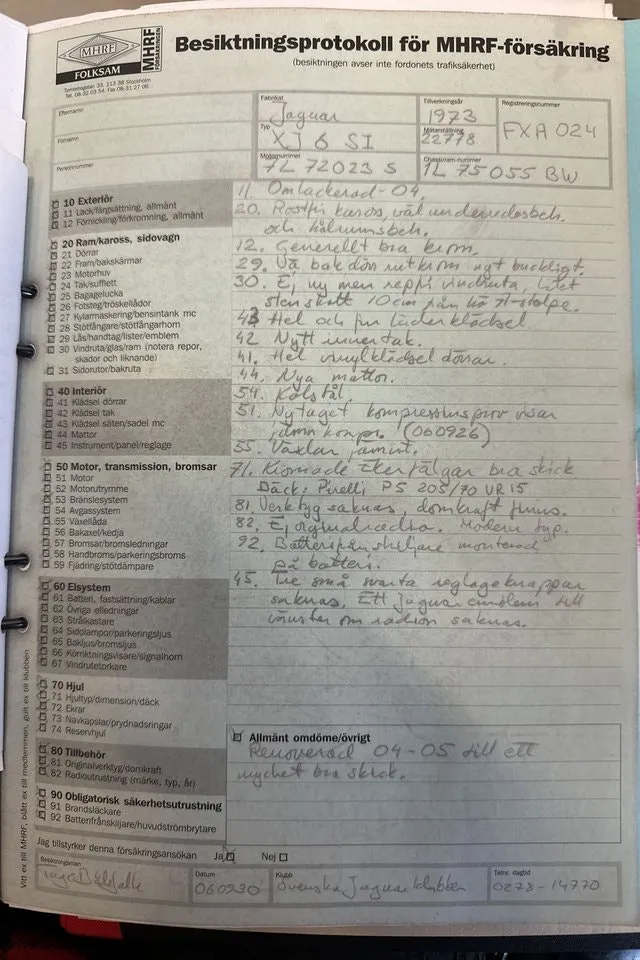 MHRF
FOLKSAM
MHRF
FÖRSÄKRINGEN
Tomtebogatan 33, 113 38 Stockholm
Tel. 08-32 03 54, Fax 08-31 27 06
Besiktningsprotokoll för MHRF-försäkring
(besiktningen avser inte fordonets trafiksäkerhet)
Efternamn
Förnamn
Personnummer
Fabrikat
Jaguar
Tillverkningsår
1973
Registreringsnummer
FXA 024
Typ
XJ 6 SI
Mätarställning
22778
Motornummer
7L 72023 S
Chassi/ram-nummer
1L 75055 BW
10 Exteriör
11 Lack/färgsättning, allmänt
12 Förnickling/förkromning, allmänt
20 Ram/kaross, sidovagn
21 Dörrar
22 Fram/bakskärmar
23 Motorhuv
24 Tak/sufflett
25 Bagagelucka
26 Fotsteg/tröskellådor
27 Kylarmaskering/bensintank mc
28 Stötfångare/stötfångarhorn
29 Lås/handtag/lister/emblem
30 Vindruta/glas/ram (notera repor,
skador och liknande)
31 Sidorutor/bakruta
40 Interiör
41 Klädsel dörrar
42 Klädsel tak
43 Klädsel säten/sadel mc
44 Mattor
45 Instrument/panel/reglage
50 Motor, transmission, bromsar
51 Motor
52 Motorutrymme
53 Bränslesystem
54 Avgassystem
55 Växellåda
56 Bakaxel/kedja
57 Bromsar/bromsledningar
58 Handbroms/parkeringsbroms
59 Fjädring/stötdämpare
60 Elsystem
61 Batteri, fastsättning/kablar
62 Övriga elledningar
63 Strålkastare
64 Sidolampor/parkeringsljus
65 Bakljus/bromsljus
66 Körriktningsvisare/signalhorn
67 Vindrutetorkare
70 Hjul
71 Hjultyp/dimension/däck
72 Ekrar
73 Navkapslar/prydnadsringar
74 Reservhjul
80 Tillbehör
81 Originalverktyg/domkraft
82 Radioutrustning (märke, typ, år)
90 Obligatorisk säkerhetsutrustning
91 Brandsläckare
92 Batterifrånskiljare/huvudströmbrytare
11. Omlackerad -04.
20. Rostfri kaross, väl underredsbeh.
och hålrumsbeh.
12. Generellt bra krom.
29. Vä bakdörr rutkrom ngt buckligt.
30. Ej ny men repfri vindruta, litet
stenskott 10cm från hö A-stolpe.
43 Hel och fin läderklädsel
42 Nytt innertak.
41. Hel vinylklädsel dörrar.
44. Nya mattor.
54. Kolstål.
51. Nytaget kompressionsprov visar
jämn kompr. (060926)
55. Växlar jämnt.
71. Kromade ekerfälgar bra skick
Däck: Pirelli P5 205/70 VR15
81. Verktyg saknas, domkraft finns.
82. Ej orginalradio. Modern typ.
92. Batterifrånskiljare monterad
på batteri.
45. Tre små svarta reglageknappar
saknas. Ett Jaguar emblem till
vänster om radion saknas.
Allmänt omdöme/övrigt
Renoverad 04-05 till ett
mycket bra skick.
Jag tillstyrker denna försäkringsansökan
Ja
Nej
Besiktningsman
Datum
060930
Klubb
Svenska Jaguarklubben
Telnr. dagtid
0278-14770
Vitt ex till MHRF, blått ex till medlemmen, gult ex till klubben